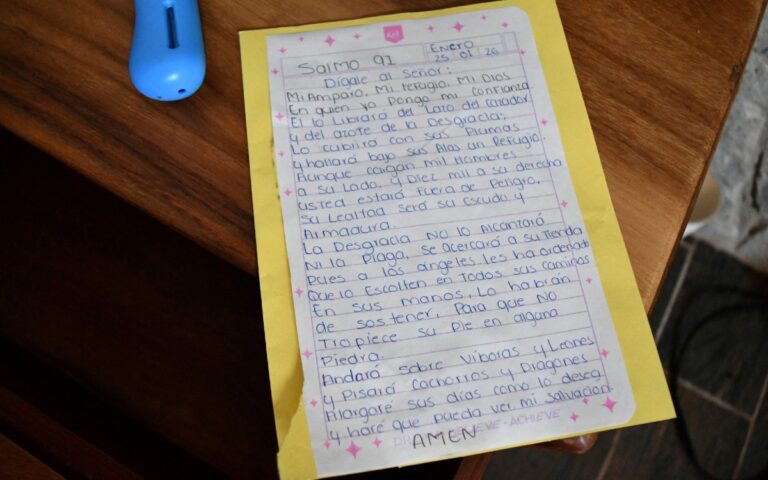 Salmo 91
Enero
25 01 26
Dígale al Señor:
Mi Amparo, Mi refugio, Mi Dios
En quien yo Pongo mi confianza.
El lo Librará del Lazo del cazador
y del azote de la Desgracia;
Lo cubrirá con sus Plumas
y hallará bajo sus Alas un Refugio.
Aunque caigan mil Hombres
a su Lado, y Diez mil a su derecha
usted estará Fuera de Peligro,
su Lealtad será su Escudo y
Armadura.
La Desgracia No lo Alcanzará
Ni la Plaga, se Acercará a su Tienda
Pues a los ángeles les ha ordenado
Que lo Escolten en Todos sus caminos
En sus manos, Lo habrán
de sostener, Para que No
Tropiece su Pie en alguna
Piedra.
Andará sobre Víboras y Leones
y Pisará Cachorros y Dragones
Alargaré sus días como lo desea
y haré que pueda ver mi salvación.
BELIEVE • ACHIEVE
AMEN